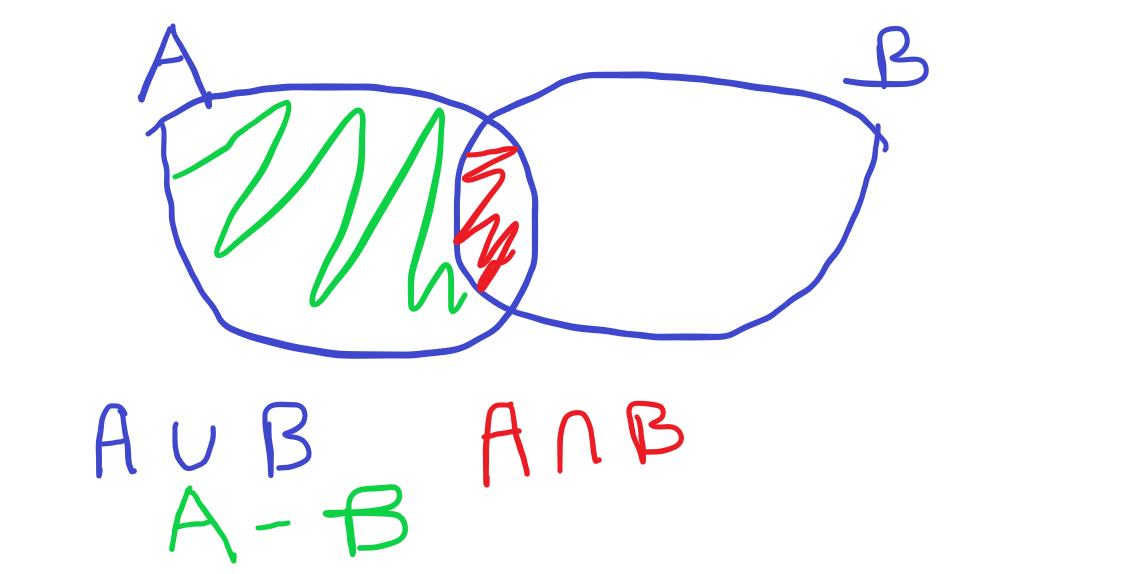 A B
A ∪ B A ∩ B
A - B